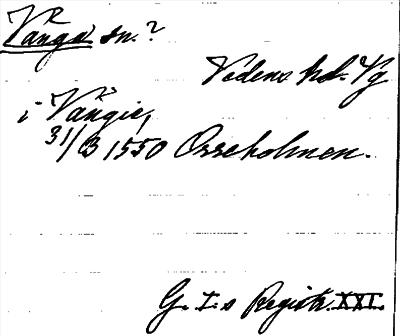 Vånga sn.?
Vedens hd. Vg
i Vångie,
31/3 1550 Orreholmen.
G. I:s Registr. XXI.